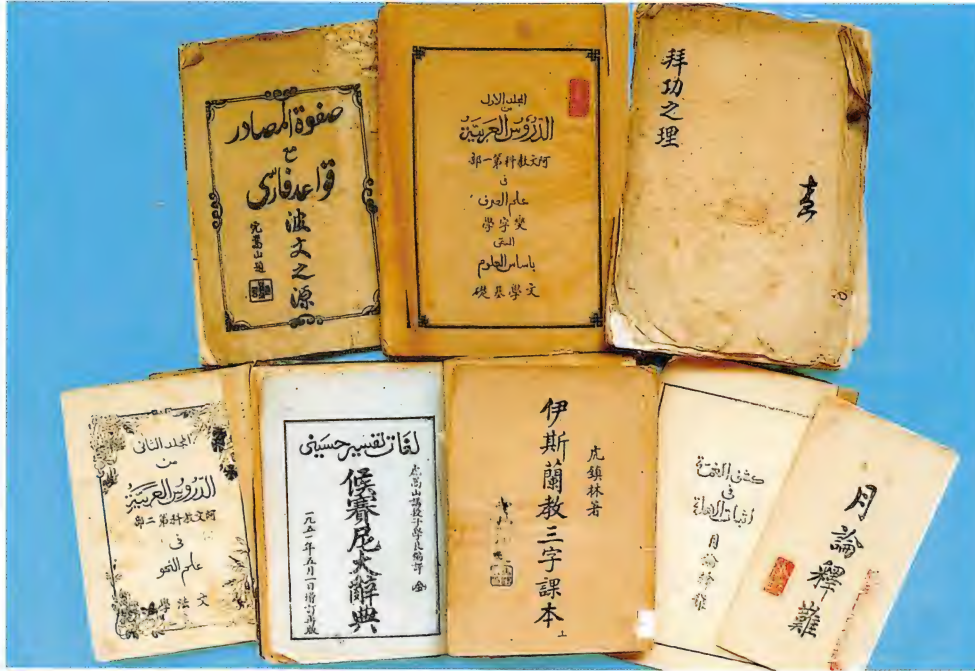 صفوة المصادر
مع
قواعد فارسی
波文之源
虎嵩山題
المجلد الاول
من
الدروس العربية
阿文教科第一部
فى
علم الصرف
變字學
المسمى
باساس العلوم
文學基礎
拜功之理
المجلد الثانى
من
الدروس العربية
阿文教科第二部
فى
علم النحو
文法學
لغات تفسير حسينى
虎嵩山講授子學民編譯 全
候賽尼大辭典
一九五一年五月一日增訂再版
虎鎮林著
伊斯蘭教三字課本 上
كشف الغمة
فى
اثبات الاهلة
月論釋難
月論釋難